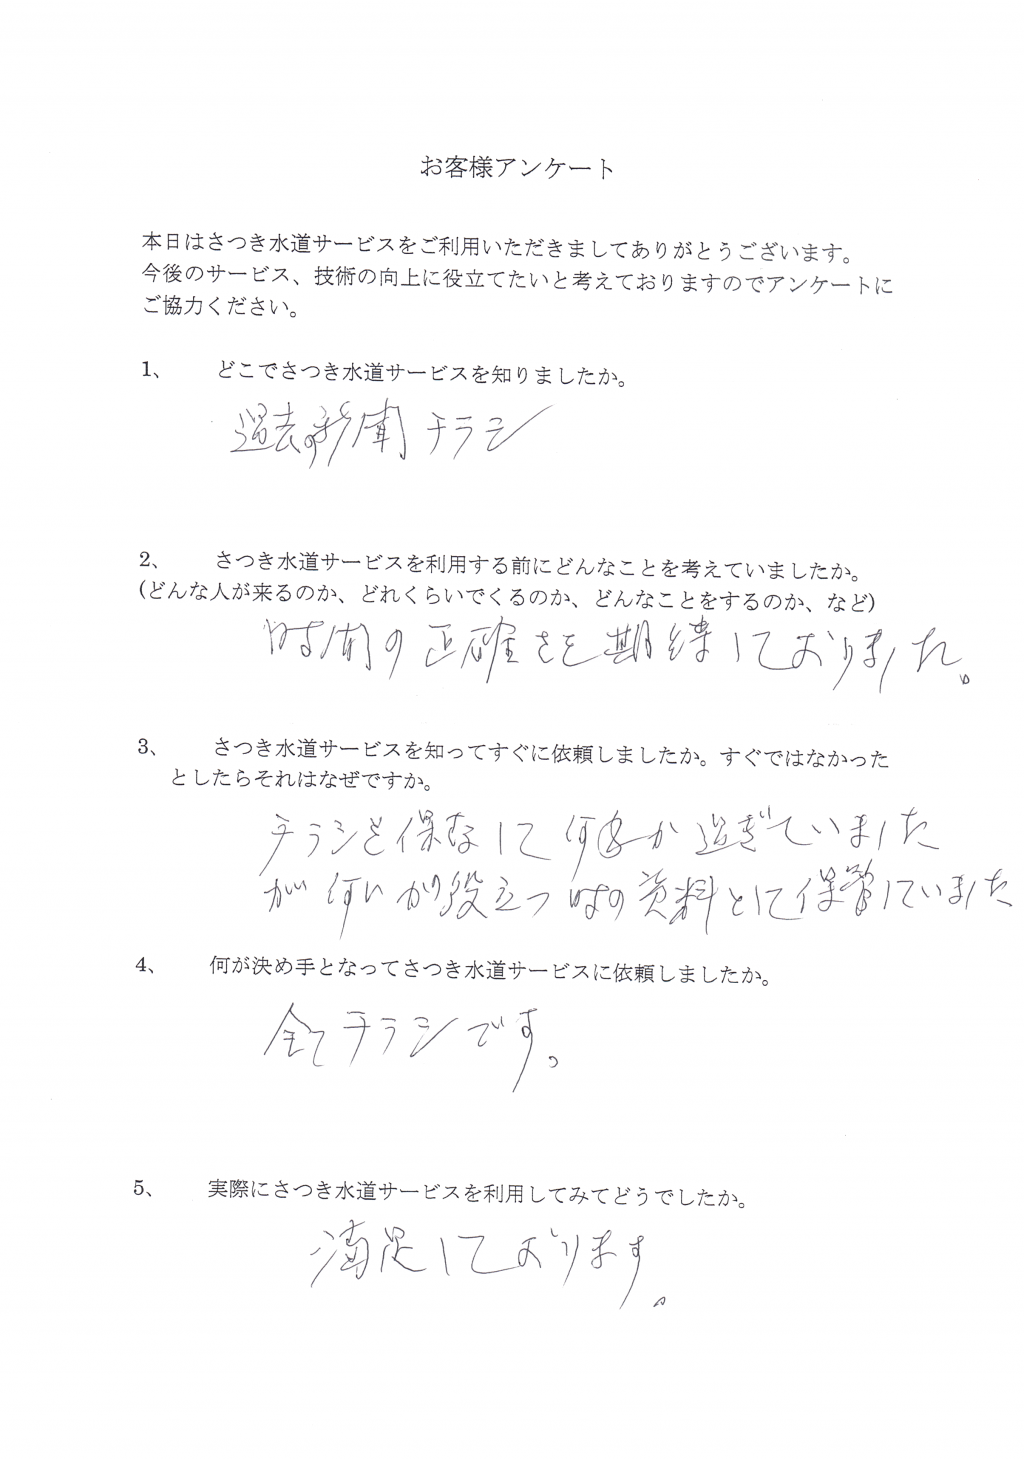 お客様アンケート
本日はさつき水道サービスをご利用いただきましてありがとうございます。
今後のサービス、技術の向上に役立てたいと考えておりますのでアンケートに
ご協力ください。
1、 どこでさつき水道サービスを知りましたか。
過去の新聞チラシ
2、 さつき水道サービスを利用する前にどんなことを考えていましたか。
(どんな人が来るのか、どれくらいでくるのか、どんなことをするのか、など)
時間の正確さを期待しておりました。
3、 さつき水道サービスを知ってすぐに依頼しましたか。すぐではなかった
としたらそれはなぜですか。
チラシを保存して何年か過ぎていました
が何いかり役立つ時の資料として保管していました
4、 何が決め手となってさつき水道サービスに依頼しましたか。
全てチラシです。
5、 実際にさつき水道サービスを利用してみてどうでしたか。
満足しております。